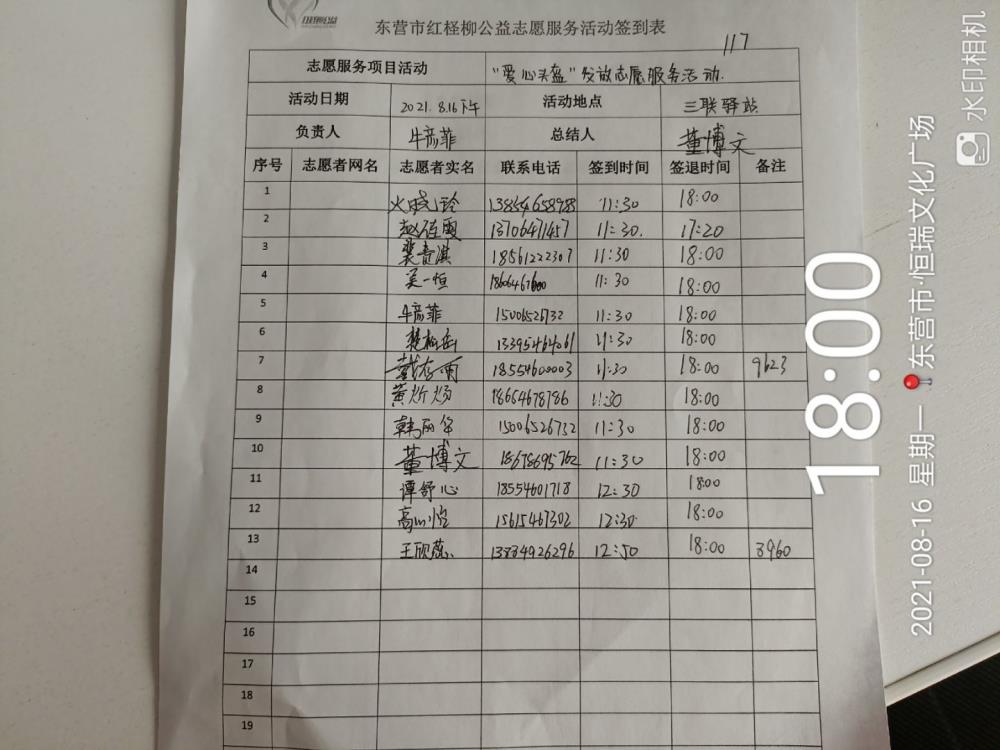 东营市红柽柳公益志愿服务活动签到表
117
志愿服务项目活动 “爱心头盔”发放志愿服务活动.
活动日期 2021.8.16下午 活动地点 三联驿站
负责人 牛彦菲 总结人 董博文
序号 志愿者网名 志愿者实名 联系电话 签到时间 签退时间 备注
1 13854658988 11:30 18:00
2 13706471457 11:30. 17:20
3 18561222307 11:30 18:00
4 吴一恒 11:30 18:00
5 牛彦菲 15006526732 11:30 18:00
6 13395464061 11:30 18:00
7 18554600003 11:30 18:00 9623
8 黄炘炀 18654678786 11:30 18:00
9 韩丽华 15006526732 11:30 18:00
10 董博文 18678695762 11:30 18:00
11 谭舒心 18554601718 12:30 18:00
12 15615467302 12:30 18:00
13 王欣蕊 13884926296 12:50 18:00 3960
14
15
16
17
18
19
18:00
2021-08-16 星期一 东营市·恒瑞文化广场
水印相机